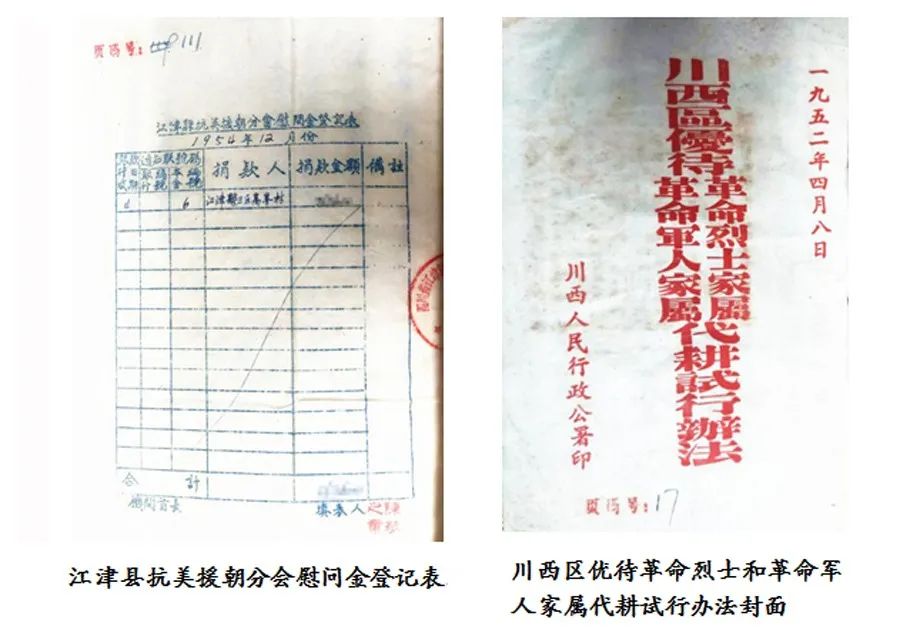 页码号：111
江津縣抗美援朝分會慰问金登记表
1954年12月份
捐款人
捐款金額
備註
6
江津縣
合計
填表人
一九五二年四月八日
川西區優待革命烈士家屬革命軍人家屬代耕試行辦法
川西人民行政公署印
页码号：17
江津县抗美援朝分会慰问金登记表
川西区优待革命烈士和革命军
人家属代耕试行办法封面